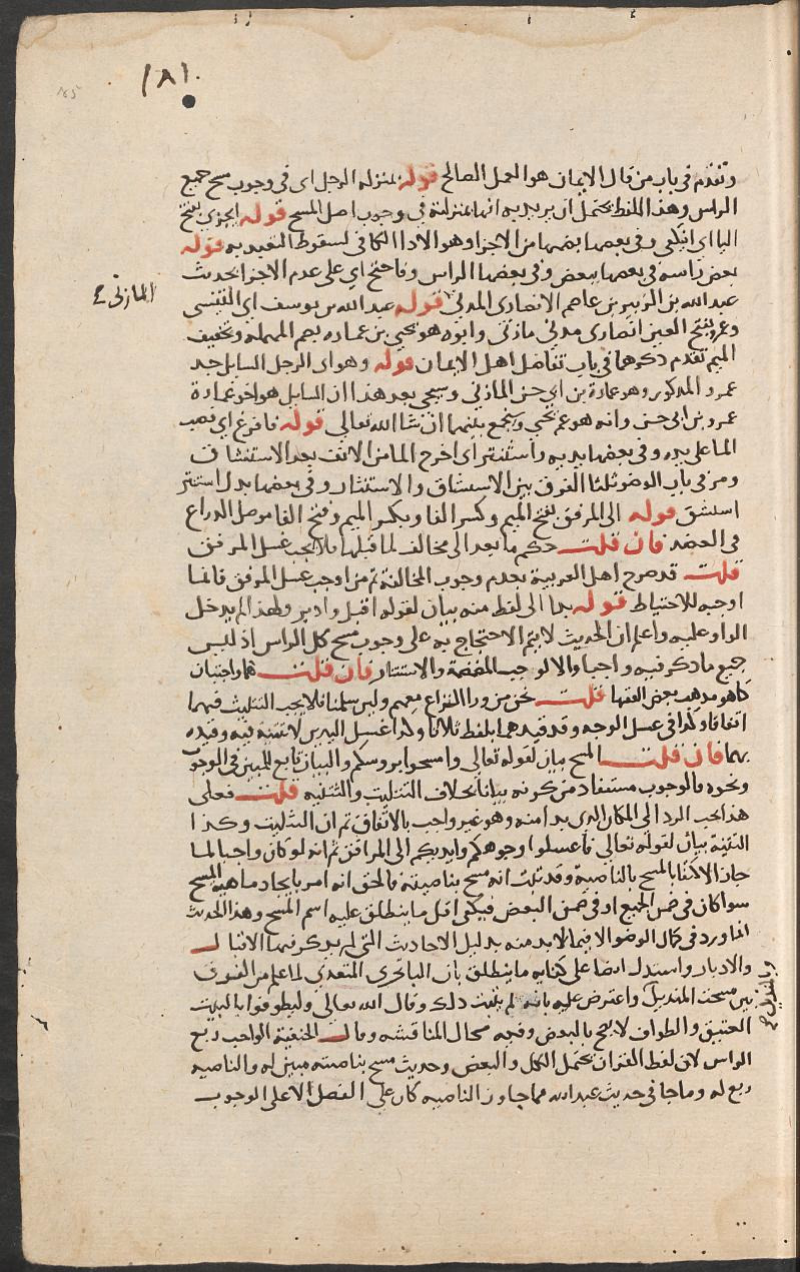 ١٨١
185
وتقدم في باب من قال الايمان هو العمل الصالح قوله بمنزلة الرجل اي في وجوب مسح جميع
الراس وهذا اللفظ يحتمل ان يريد به انها بمنزلته في وجوب اصل المسح قوله ايجزي بفتح
اليا اي ايكفي وفي بعضها بضمها من الاجزا وهو الادا الكافي لسقوط التعبد به قوله
بعض راسه في بعضها ببعض وفي بعضها الراس وفاحتج اي على عدم الاجزا بحديث
عبدالله بن زيد بن عاصم الانصاري المدني قوله عبدالله بن يوسف اي التنيسي
المازني
وعمرو بفتح العين انصاري مدني مازني وابوه هو يحيى بن عماره بضم المهمله وتخفيف
الميم تقدم ذكرهما في باب تفاضل اهل الايمان قوله وهو اي الرجل السايل جد
عمرو المذكور وهو عمارة بن ابي حسن المازني وسيجي بعد هذا ان السايل هو اخو عمارة
عمرو بن ابي حسن وانه هو عم يحيى ويجمع بينهما ان شا الله تعالى قوله فافرغ اي فصب
الما على يده وفي بعضها يديه واستنثر اي اخرج الما من الانف بعد الاستنشاق
ومر في باب الوضو ثلثا الفرق بين الاستنشاق والاستنثار وفي بعضها بدل استنثر
استنشق قوله الى المرفق بفتح الميم وكسر الفا وبكسر الميم وفتح الفا موصل الدراع
في العضد فان قلت حكم ما بعد الى مخالف لما قبلها فلا يجب غسل المرفق
قلت قد صرح اهل العربية بعدم وجوب المخالفة ثم من اوجب غسل المرفق فانما
اوجبه للاحتياط قوله بدا الى لفظ منه بيان لقوله اقبل وادبر ولهذا لم يدخل
الواو عليه واعلم ان الحديث لا يتم الاحتجاج به على وجوب مسح كل الراس اذ ليس
جميع ما ذكر فيه واجبا والا لوجب المضمضة والاستنثار فان قلت هما واجبتان
كما هو مذهب بعض الفقها قلت نحن من ورا النزاع معهم ولين سلمنا فلا يجب التثليث فيهما
اتفاقا وكذا في غسل الوجه وقد قيدهما بلفظ ثلاثا وكذا غسل اليدين لا تثنية فيه وقيده
بهما فان قلت المسح بيان لقوله تعالى وامسحوا بروسكم والبيان تابع للمبين في الوجوب
ونحوه فالوجوب مستفاد من كونه بيانا بخلاف التثليث والتثنيه قلت فعلى
هذا يجب الرد الى المكان الذي بدا منه وهو غير واجب بالاتفاق ثم ان التثليث وكذا
التثنية بيان لقوله تعالى فاغسلوا وجوهكم وايديكم الى المرافق ثم انه لو كان واجبا لما
جاز الاكتفا بالمسح بالناصية وقد ثبت انه مسح بناصيته فالحق انه امر بايجاد ماهية المسح
سوا كان في ضمن الجميع او في ضمن البعض فيكفي اقل ما ينطلق عليه اسم المسح وهذا الحديث
انما ورد في كمال الوضو لا فيما لابد منه بدليل الاحاديث التي لم يذكر فيها الاقبال
والادبار واستدل ايضا على كفاية ما ينطلق بان البا في المتعدي لما علم من الفرق
بين مسحت المنديل واعترض عليه بانه لم يثبت ذلك وقال الله تعالى وليطوفوا بالبيت
وبالمنديل
العتيق والطواف لا يصح بالبعض وفيه مجال المناقشه وقال الحنفية الواجب ربع
الراس لان لفظ القران يحتمل الكل والبعض وحديث مسح بناصيته مبين له والناصيه
ربع له وما جا في حديث عبدالله مما جاوز الناصيه كان على الفضل لا على الوجوب